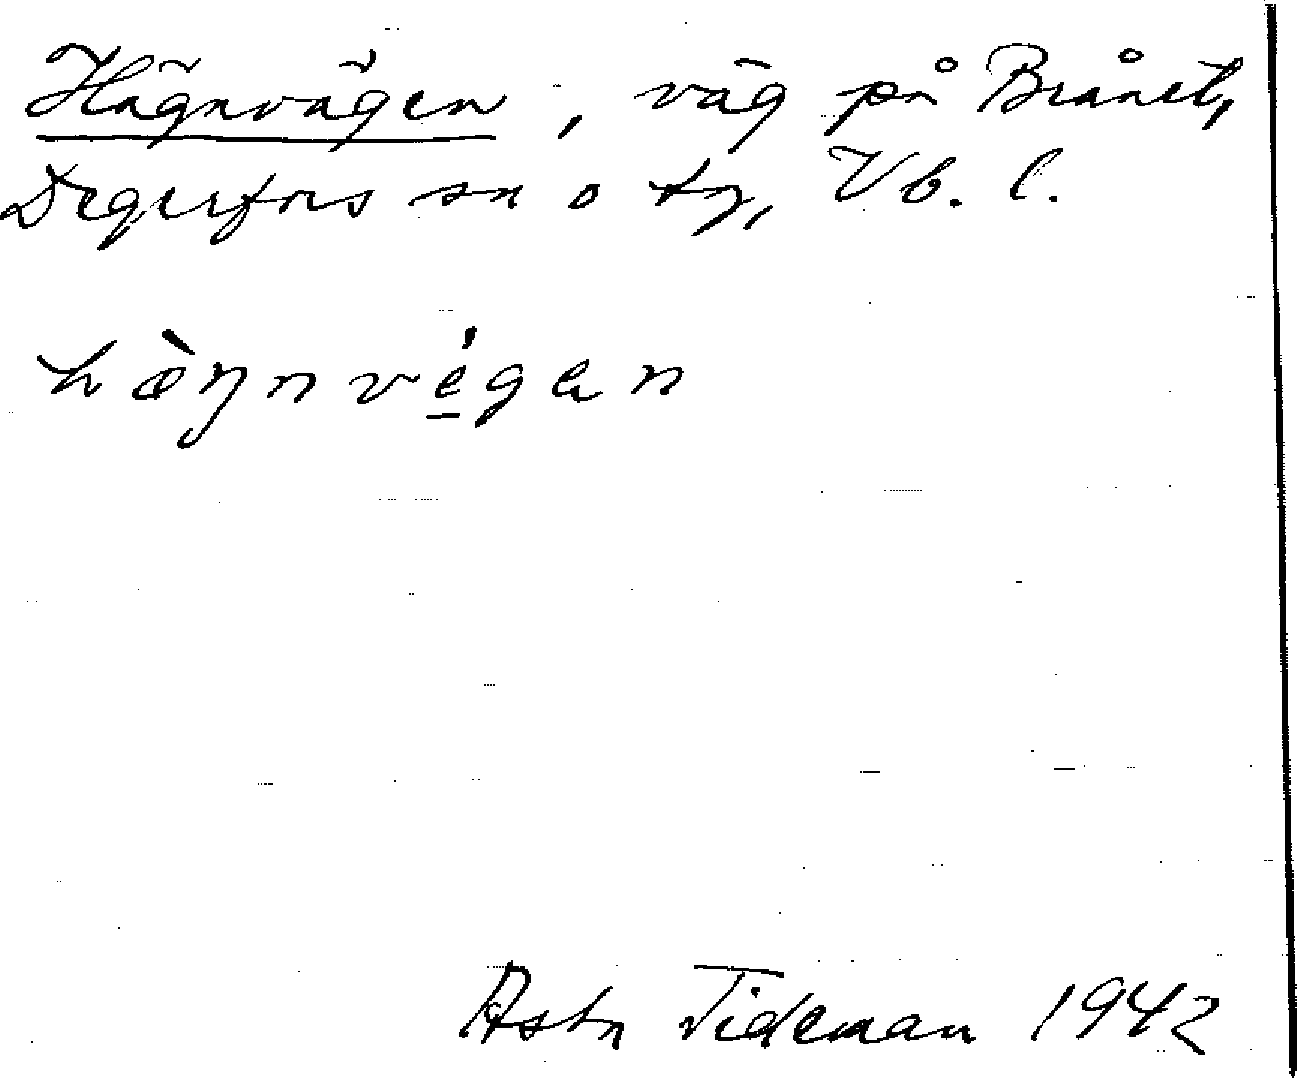 Hägnvägen, väg på Brånet,
Degerfors sn o tg, Vb. l.
hæ̀ŋnvé̲gen
Asta Tideman 1942